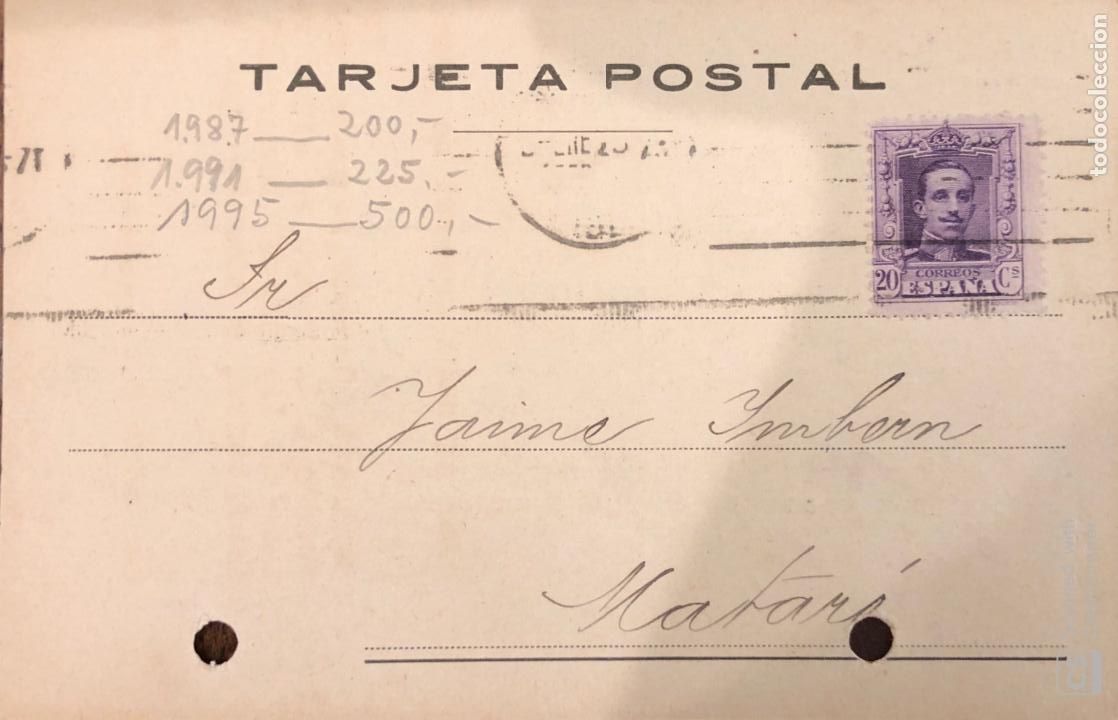 TARJETA POSTAL
1987 — 200,-
1.991 — 225,-
1995 — 500,-
20 CORREOS Cs
ESPAÑA
Sr
Jaime Imbern
Mataró
todocoleccion